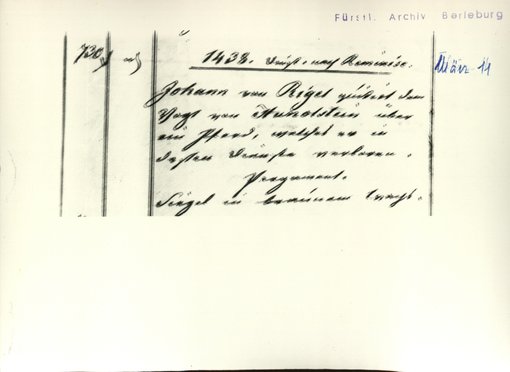 Fürstl. Archiv Berleburg
730
1438. Dienst. nach Reminisc.
März 11
Johann von Rigel quitirt dem
Vogt von Hunolstein über
ein Pferd, welches er in
dessen Dienste verloren.
Pergament.
Siegel in braunem Wachs.